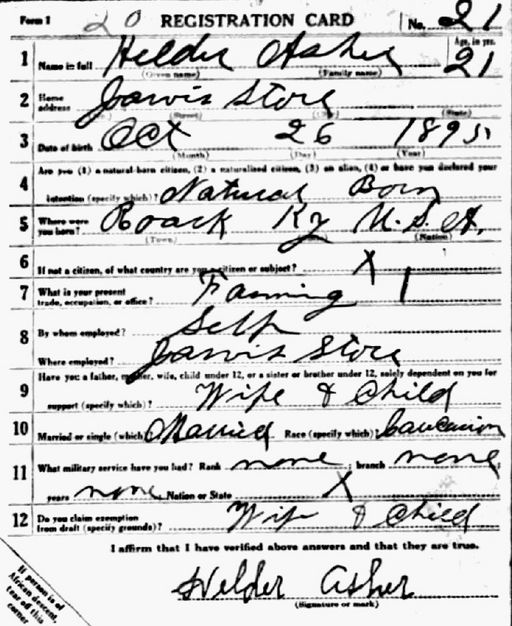 Form 1 20 REGISTRATION CARD No. 21
1 Name in full Helder Asher Age, in yrs. 21
(Given name) (Family name)
2 Home address Jarvis Store
(Street) (State)
3 Date of birth Oct 26 1895
(Month) (Day) (Year)
4 Are you (1) a natural-born citizen, (2) a naturalized citizen, (3) an alien, (4) or have you declared your
intention (specify which)? Natural Born
5 Where were you born? Roark Ky U.S.A.
(Town) (Nation)
6 If not a citizen, of what country are you a citizen or subject? X
7 What is your present trade, occupation, or office? Farming 1
8 By whom employed? Self
Where employed? Jarvis Store
9 Have you a father, mother, wife, child under 12, or a sister or brother under 12, solely dependent on you for
support (specify which)? Wife & Child
10 Married or single (which) Married Race (specify which)? Caucasian
11 What military service have you had? Rank none ; branch none ;
years none Nation or State X
12 Do you claim exemption from draft (specify grounds)? Wife & Child
I affirm that I have verified above answers and that they are true.
Helder Asher
(Signature or mark)
If person is of
African descent,
tear off this
corner